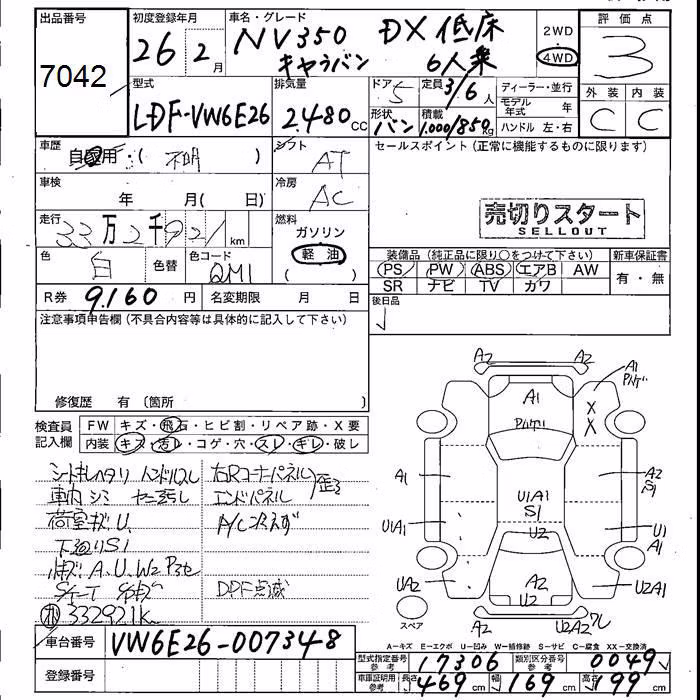 出品番号
7042
初度登録年月
26年2月
車名・グレード
NV350 DX 低床
キャラバン 6人乗
2WD
4WD
評価点
3
外装 内装
C C
型式
LDF-VW6E26
排気量
2480cc
ドア 5
定員 3/6人
形状 バン
積載 1,000/850kg
ディーラー・並行
モデル年式 年
ハンドル 左・右
車歴
自家用・( 不明 )
シフト
AT
セールスポイント(正常に機能するものに限ります)
車検
年 月( 日)
冷房
AC
売切りスタート
SELLOUT
走行
33万2千921km
燃料
ガソリン
軽油
( )
色
白
色替
色コード
QM1
装備品(純正品に限り〇をつけて下さい)
新車保証書
PS PW ABS エアB AW
SR ナビ TV カワ
有・無
R券 9,160円
名変期限 月 日
後日品
注意事項申告欄(不具合内容等は具体的に記入して下さい)
修復歴 有〔箇所 〕
検査員記入欄
FW キズ・飛石・ヒビ割・リペア跡・X要
内装 キズ・汚レ・コゲ・穴・スレ・キレ・破レ
シートキレヘタリ ハンドルスレ
車内シミ ヤニ汚し
荷室キズU
下廻りS1
332921k
右Rコーナーパネル
エンドパネル 歪
A/C冷えず
DPF点滅
A2 A2
A1
A1
XX
A1
A2
S1
U1A1
S1
U1A1
U1
A1
U2
UA2
A2
U2
U2A1
スペア
A2
U2A2
車台番号 VW6E26-007348
登録番号
A-キズ E-エクボ U-凹み W-補修跡 S-サビ C-腐食 XX-交換済
型式指定番号参考 17306
類別区分番号参考 0049
車庫証明用参考 長さ469cm 幅169cm 高さ199cm